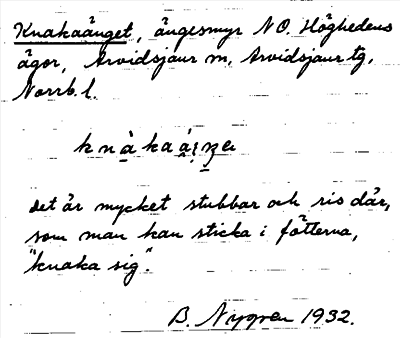 Knakaänget, ängesmyr NO. Höghedens
ägor, Arvidsjaur sn, Arvidsjaur tg,
Norrb. l.
det är mycket stubbar och ris där,
som man kan sticka i fötterna,
"knaka sig".
B. Nygren 1932.